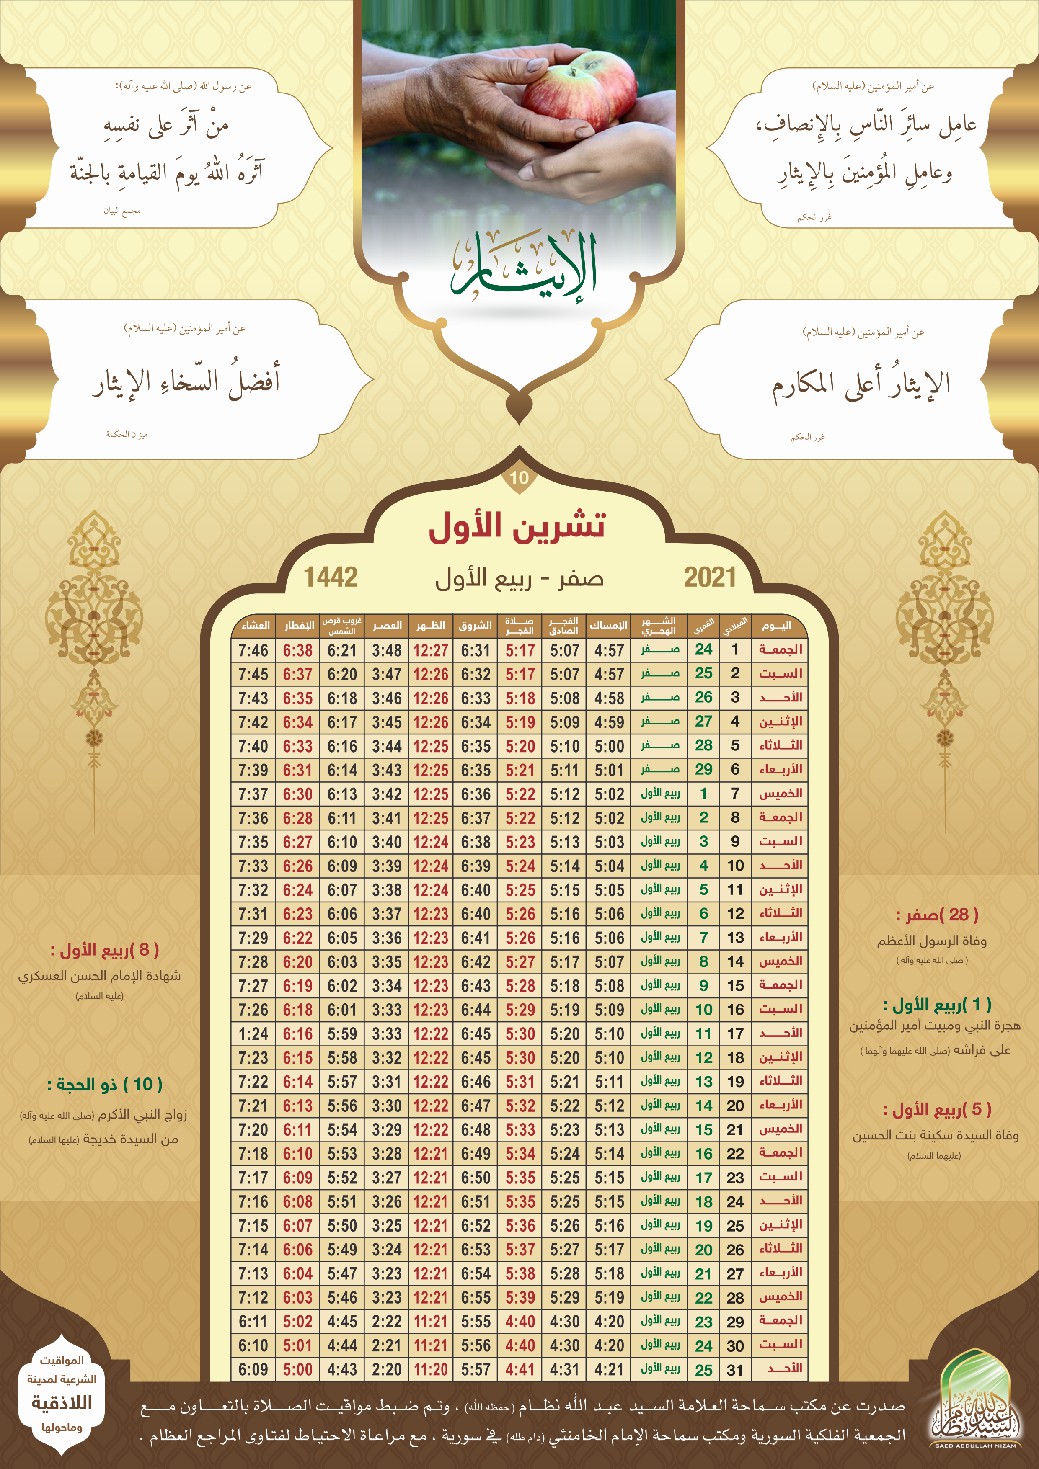 عن أمير المؤمنين (عليه السلام)
عامِل سائرَ النّاسِ بِالإنصافِ،
وعامِلِ المُؤمِنينَ بِالإيثارِ
غرر الحكم
عن رسول الله (صلى الله عليه وآله):
منْ آثَرَ على نفسِهِ
آثَرَهُ اللهُ يومَ القيامةِ بالجنّة
مجمع البيان
الإيثار
عن أمير المؤمنين (عليه السلام)
الإيثارُ أعلى المكارم
غرر الحكم
عن أمير المؤمنين (عليه السلام)
أفضلُ السّخاءِ الإيثار
ميزان الحكمة
10
تشرين الأول
2021 صفر - ربيع الأول 1442
اليوم الميلادي القمري الشهر الهجري الإمساك الفجر الصادق صلاة الفجر الشروق الظهر العصر غروب قرص الشمس الإفطار العشاء
الجمعة 1 24 صفر 4:57 5:07 5:17 6:31 12:27 3:48 6:21 6:38 7:46
السبت 2 25 صفر 4:57 5:07 5:17 6:32 12:26 3:47 6:20 6:37 7:45
الأحد 3 26 صفر 4:58 5:08 5:18 6:33 12:26 3:46 6:18 6:35 7:43
الإثنين 4 27 صفر 4:59 5:09 5:19 6:34 12:26 3:45 6:17 6:34 7:42
الثلاثاء 5 28 صفر 5:00 5:10 5:20 6:35 12:25 3:44 6:16 6:33 7:40
الأربعاء 6 29 صفر 5:01 5:11 5:21 6:35 12:25 3:43 6:14 6:31 7:39
الخميس 7 1 ربيع الأول 5:02 5:12 5:22 6:36 12:25 3:42 6:13 6:30 7:37
الجمعة 8 2 ربيع الأول 5:02 5:12 5:22 6:37 12:25 3:41 6:11 6:28 7:36
السبت 9 3 ربيع الأول 5:03 5:13 5:23 6:38 12:24 3:40 6:10 6:27 7:35
الأحد 10 4 ربيع الأول 5:04 5:14 5:24 6:39 12:24 3:39 6:09 6:26 7:33
الإثنين 11 5 ربيع الأول 5:05 5:15 5:25 6:40 12:24 3:38 6:07 6:24 7:32
الثلاثاء 12 6 ربيع الأول 5:06 5:16 5:26 6:40 12:23 3:37 6:06 6:23 7:31
الأربعاء 13 7 ربيع الأول 5:06 5:16 5:26 6:41 12:23 3:36 6:05 6:22 7:29
الخميس 14 8 ربيع الأول 5:07 5:17 5:27 6:42 12:23 3:35 6:03 6:20 7:28
الجمعة 15 9 ربيع الأول 5:08 5:18 5:28 6:43 12:23 3:34 6:02 6:19 7:27
السبت 16 10 ربيع الأول 5:09 5:19 5:29 6:44 12:23 3:33 6:01 6:18 7:26
الأحد 17 11 ربيع الأول 5:10 5:20 5:30 6:45 12:22 3:33 5:59 6:16 1:24
الإثنين 18 12 ربيع الأول 5:10 5:20 5:30 6:45 12:22 3:32 5:58 6:15 7:23
الثلاثاء 19 13 ربيع الأول 5:11 5:21 5:31 6:46 12:22 3:31 5:57 6:14 7:22
الأربعاء 20 14 ربيع الأول 5:12 5:22 5:32 6:47 12:22 3:30 5:56 6:13 7:21
الخميس 21 15 ربيع الأول 5:13 5:23 5:33 6:48 12:22 3:29 5:54 6:11 7:20
الجمعة 22 16 ربيع الأول 5:14 5:24 5:34 6:49 12:21 3:28 5:53 6:10 7:18
السبت 23 17 ربيع الأول 5:15 5:25 5:35 6:50 12:21 3:27 5:52 6:09 7:17
الأحد 24 18 ربيع الأول 5:15 5:25 5:35 6:51 12:21 3:26 5:51 6:08 7:16
الإثنين 25 19 ربيع الأول 5:16 5:26 5:36 6:52 12:21 3:25 5:50 6:07 7:15
الثلاثاء 26 20 ربيع الأول 5:17 5:27 5:37 6:53 12:21 3:24 5:49 6:06 7:14
الأربعاء 27 21 ربيع الأول 5:18 5:28 5:38 6:54 12:21 3:23 5:47 6:04 7:13
الخميس 28 22 ربيع الأول 5:19 5:29 5:39 6:55 12:21 3:23 5:46 6:03 7:12
الجمعة 29 23 ربيع الأول 4:20 4:30 4:40 5:55 11:21 2:22 4:45 5:02 6:11
السبت 30 24 ربيع الأول 4:20 4:30 4:40 5:56 11:21 2:21 4:44 5:01 6:10
الأحد 31 25 ربيع الأول 4:21 4:31 4:41 5:57 11:20 2:20 4:43 5:00 6:09
( 28 )صفر :
وفاة الرسول الأعظم
( صلى الله عليه وآله )
( 1 )ربيع الأول :
هجرة النبي ومبيت أمير المؤمنين
على فراشه (صلى الله عليهما وآلهما )
( 5 )ربيع الأول :
وفاة السيدة سكينة بنت الحسين
(عليهما السلام)
( 8 )ربيع الأول :
شهادة الإمام الحسن العسكري
(عليه السلام)
( 10 ) ذو الحجة :
زواج النبي الأكرم (صلى الله عليه وآله)
من السيدة خديجة (عليها السلام)
المواقيت
الشرعية لمدينة
اللاذقية
وماحولها
صدرت عن مكتب سماحة العلامة السيد عبد الله نظام (حفظه الله) ، وتم ضبط مواقيت الصلاة بالتعاون مع
الجمعية الفلكية السورية ومكتب سماحة الإمام الخامنئي (دام ظله) في سورية ، مع مراعاة الاحتياط لفتاوى المراجع العظام .
السيد عبد الله نظام
SAED ABDULLAH NIZAM